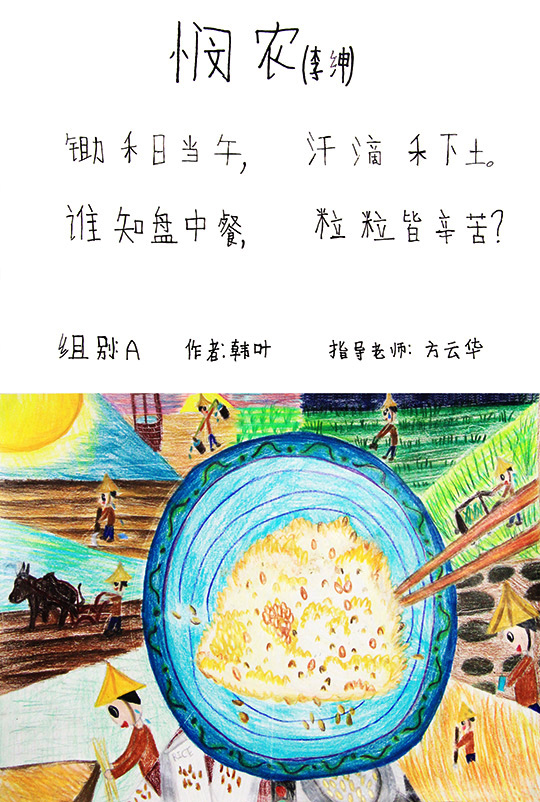 悯农(李绅)
锄禾日当午, 汗滴禾下土。
谁知盘中餐, 粒粒皆辛苦?
组别:A 作者:韩叶 指导老师: 方云华
RICE